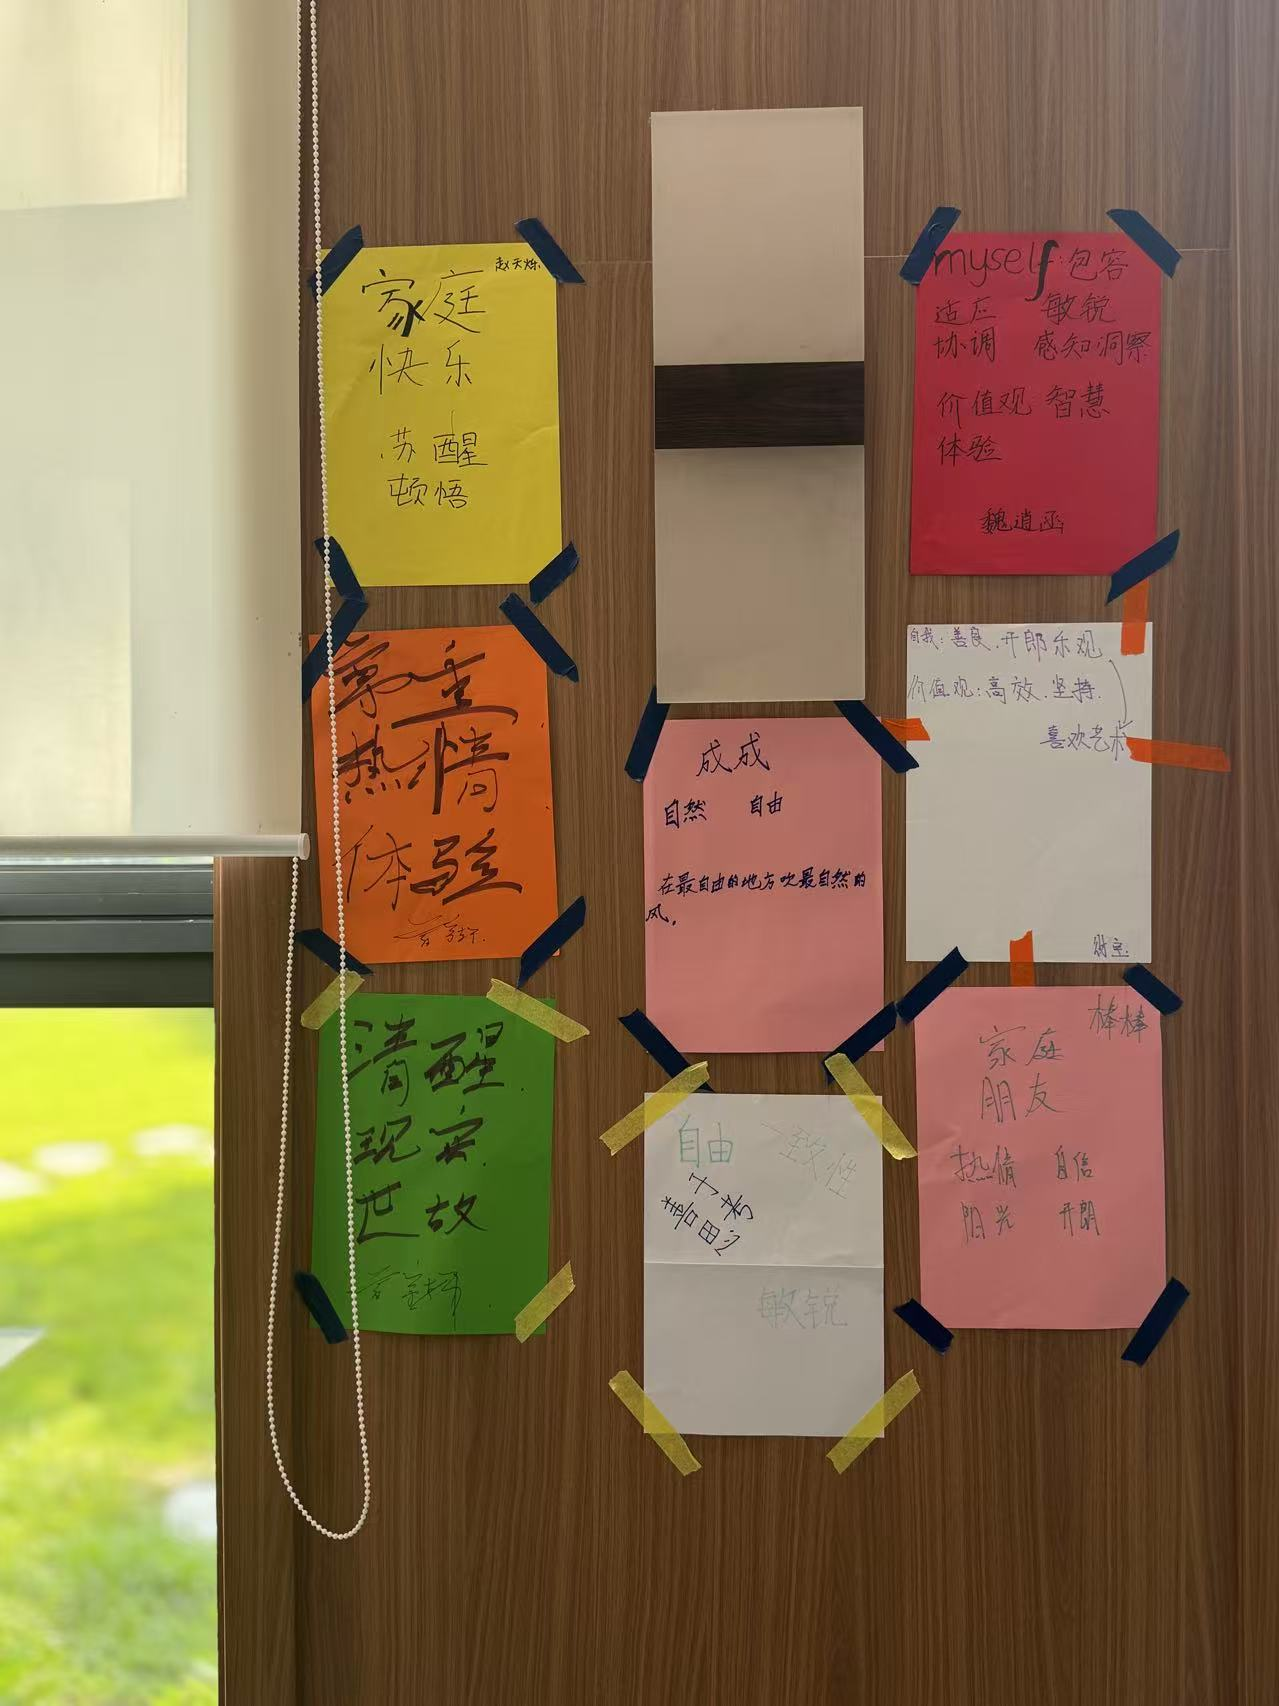 赵天烁
家庭
快乐
苏醒
顿悟
尊重
热情
体验
清醒.
现实.
世故
成成
自然 自由
在最自由的地方吹最自然的
风。
自由 一致性
思考
善良
敏锐
myself:包容
适应 敏锐
协调 感知洞察
价值观 智慧
体验
魏逍函
自我:善良.开郎乐观
价值观:高效.坚持.
喜欢艺术
棒棒
家庭
朋友
热情 自信
阳光 开朗